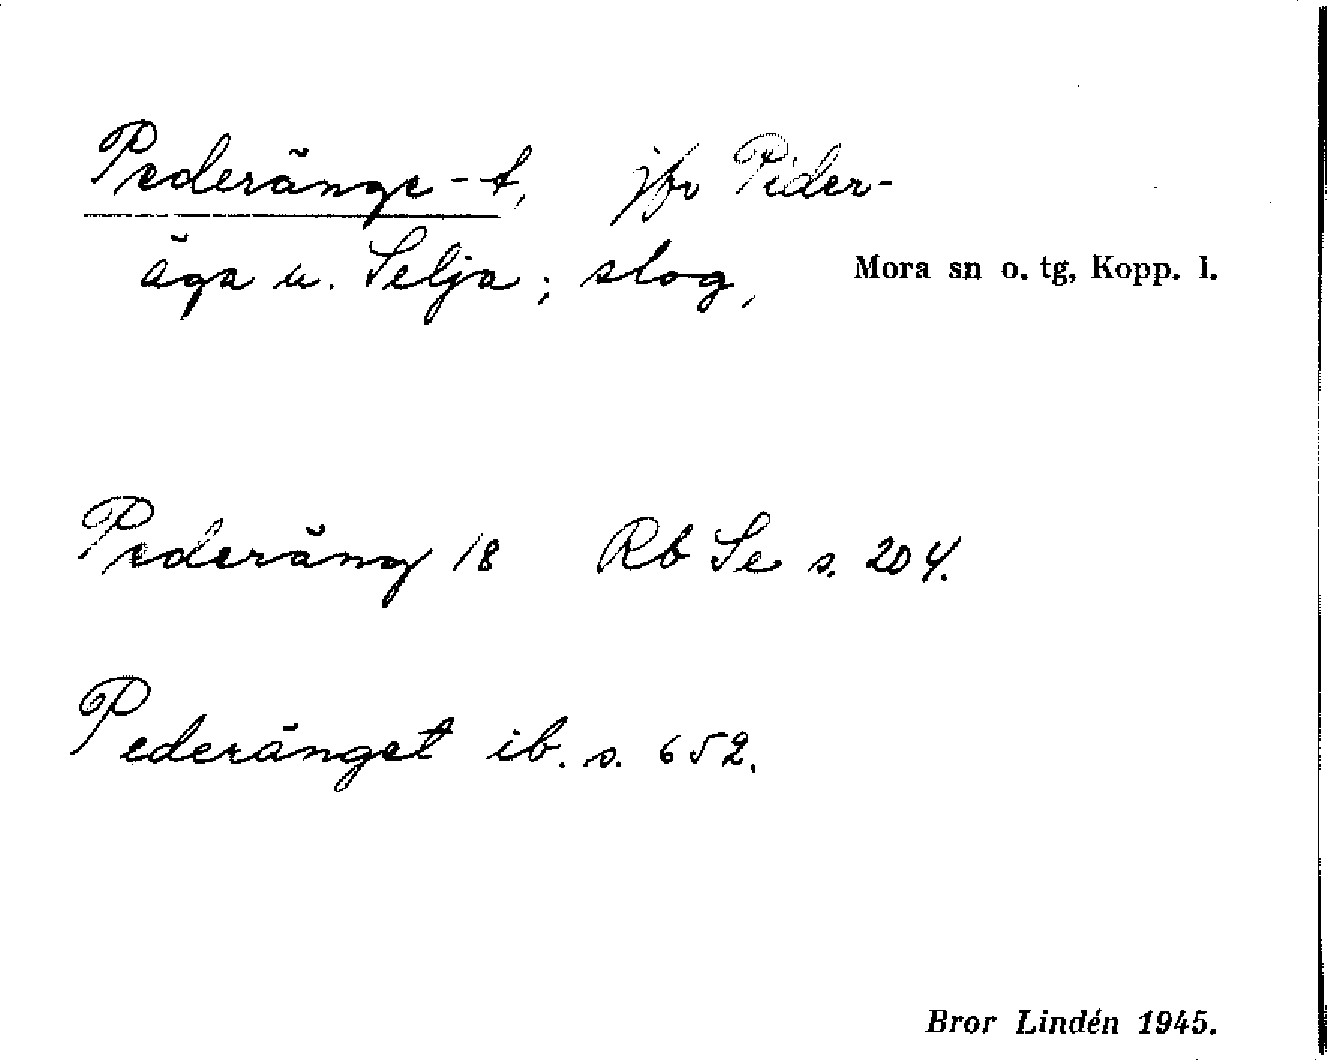 Pederänge-t, jfr Pider-
äga u. Selja; slog,
Mora sn o. tg, Kopp. l.
Pederäng 18 Rb Se s. 204.
Pederänget ib. s. 652.
Bror Lindén 1945.